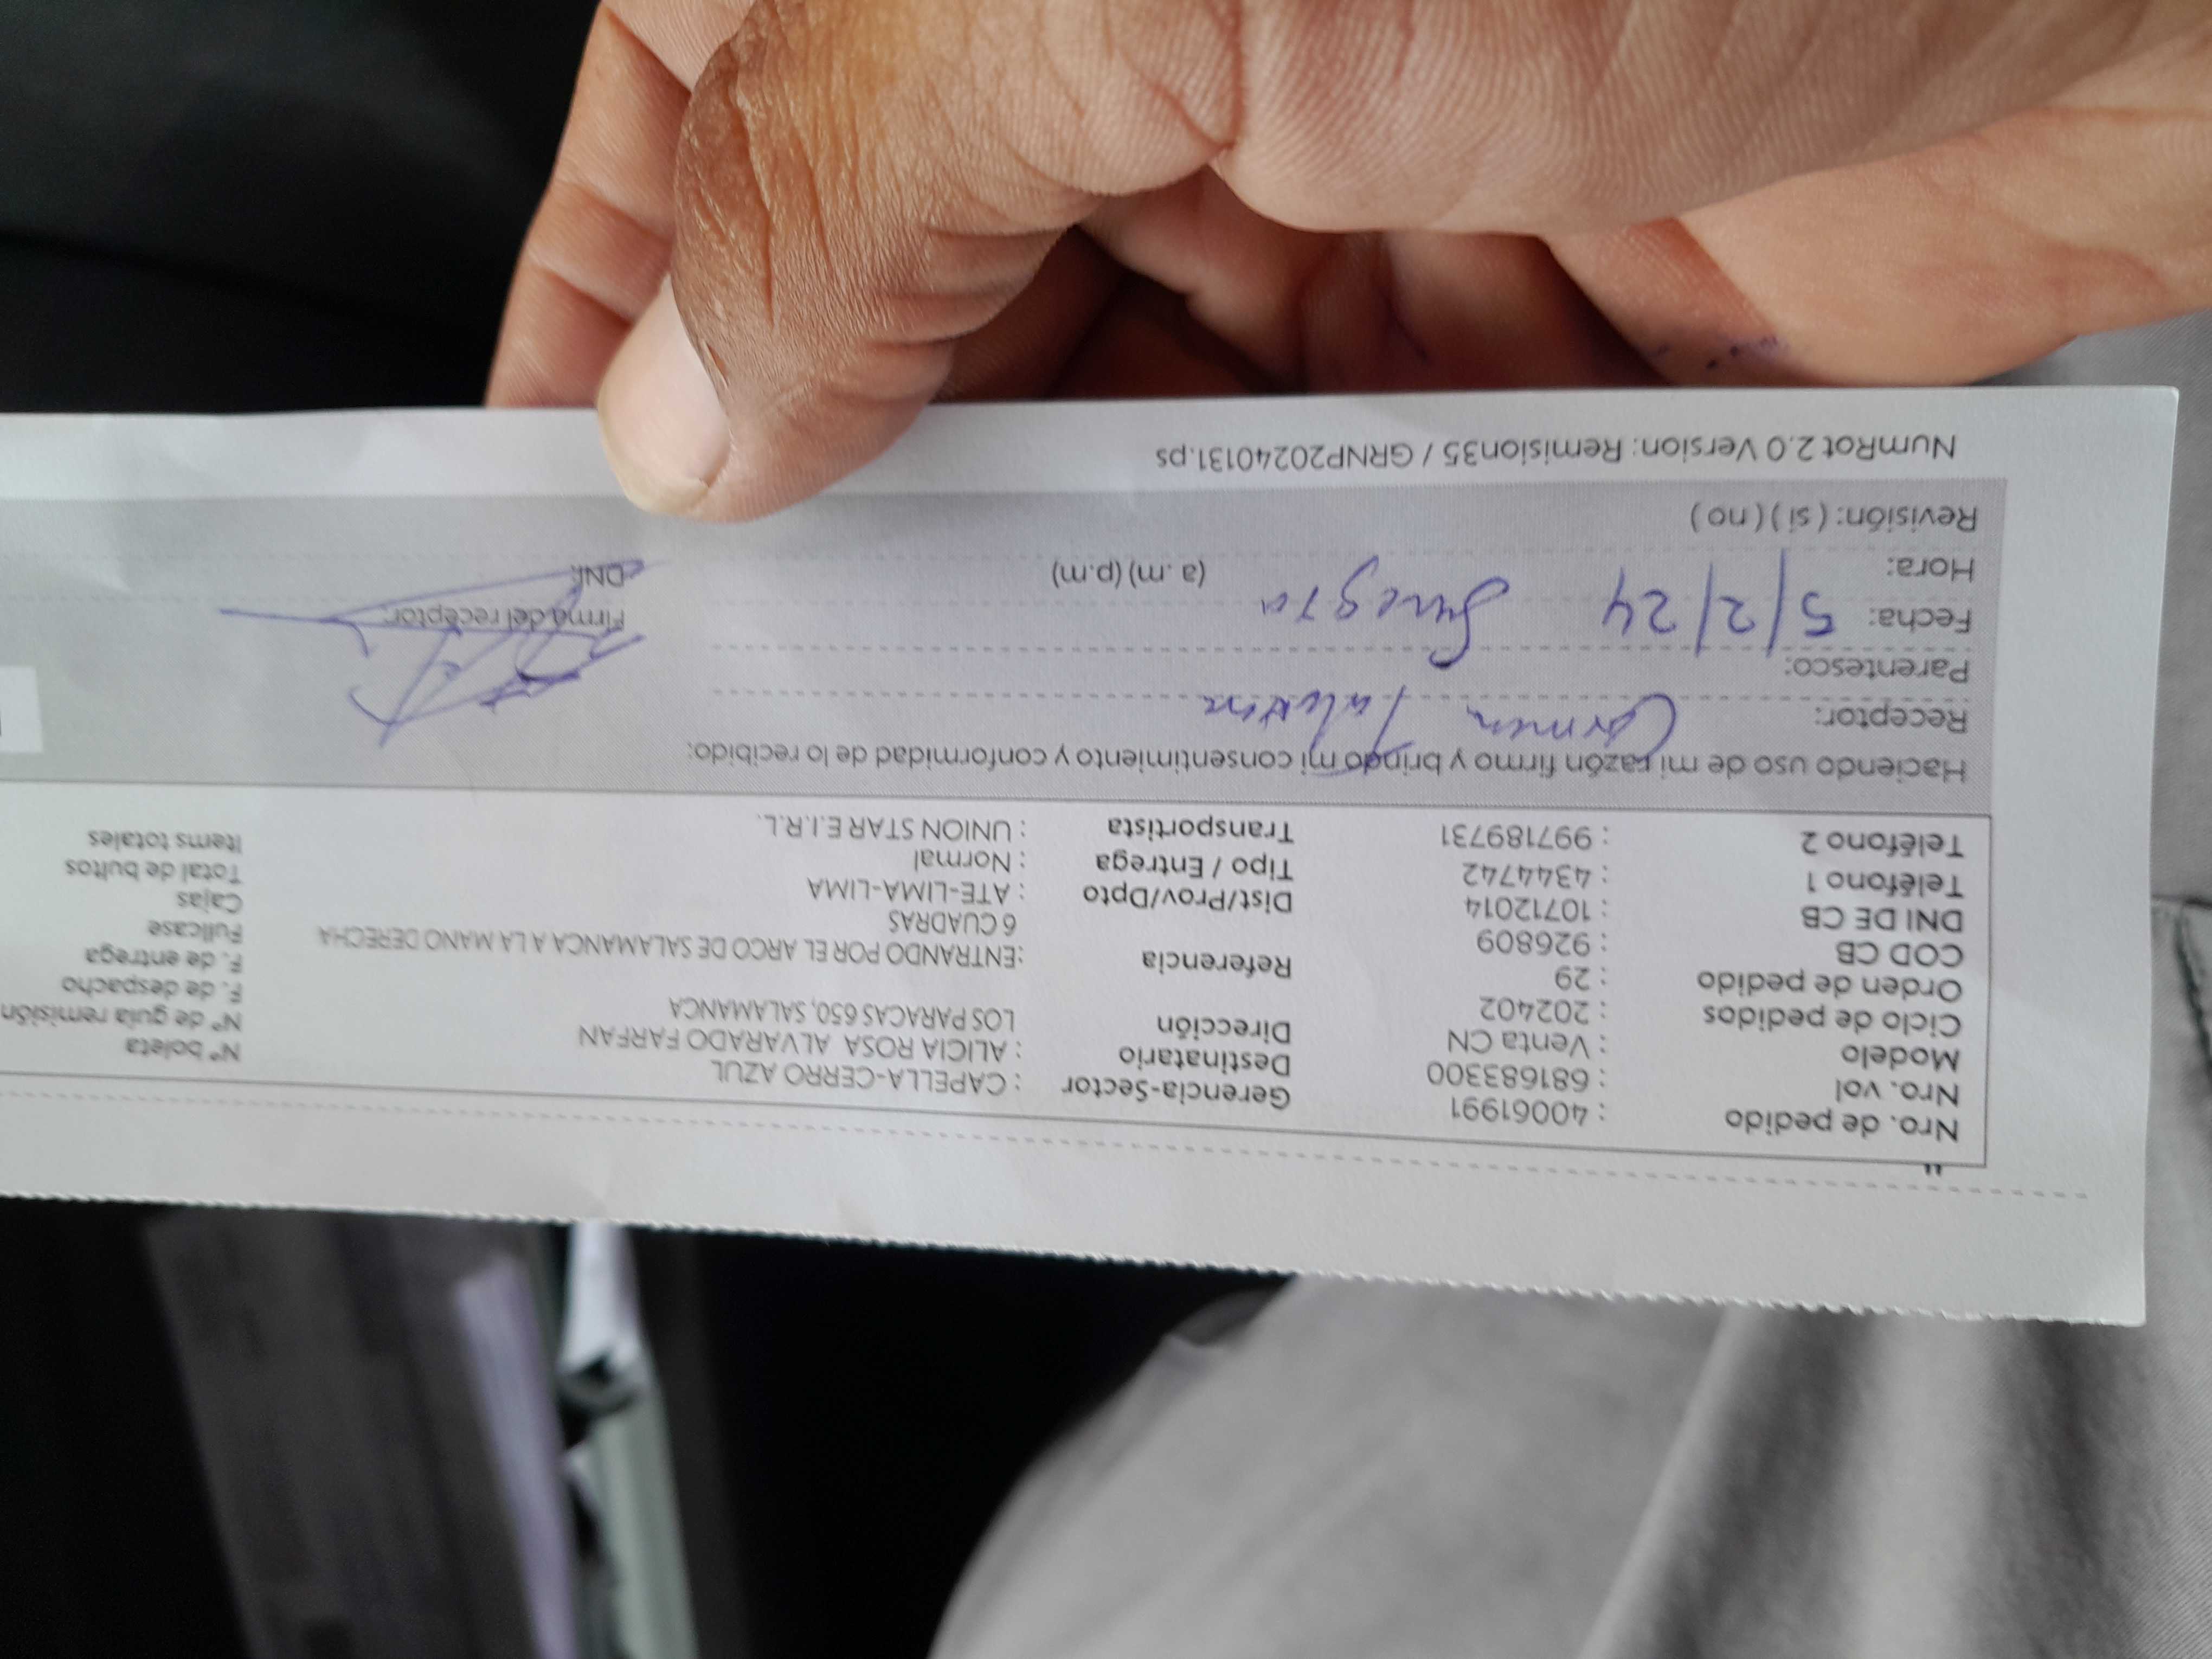 Nro. de pedido : 40061991 Gerencia-Sector : CAPELLA-CERRO AZUL Nº boleta
Nro. vol : 681683300 Destinatario : ALICIA ROSA ALVARADO FARFAN Nº de guia remisión
Modelo : Venta CN Dirección LOS PARACAS 650, SALAMANCA F. de despacho
Ciclo de pedidos : 202402 F. de entrega
Orden de pedido : 29 Referencia :ENTRANDO POR EL ARCO DE SALAMANCA A LA MANO DERECHA Fullcase
COD CB : 926809 6 CUADRAS Cajas
DNI DE CB : 10712014 Dist/Prov/Dpto : ATE-LIMA-LIMA Total de bultos
Teléfono 1 : 4344742 Tipo / Entrega : Normal Items totales
Teléfono 2 : 997189731 Transportista : UNION STAR E.I.R.L.
Haciendo uso de mi razón firmo y brindo mi consentimiento y conformidad de lo recibido:
Receptor: Carmen
Parentesco:
Fecha: 5/2/24 Suegra Firma del receptor:
Hora: (a .m) (p.m) DNI:
Revisión: ( si ) ( no )
NumRot 2.0 Version: Remision35 / GRNP20240131.ps